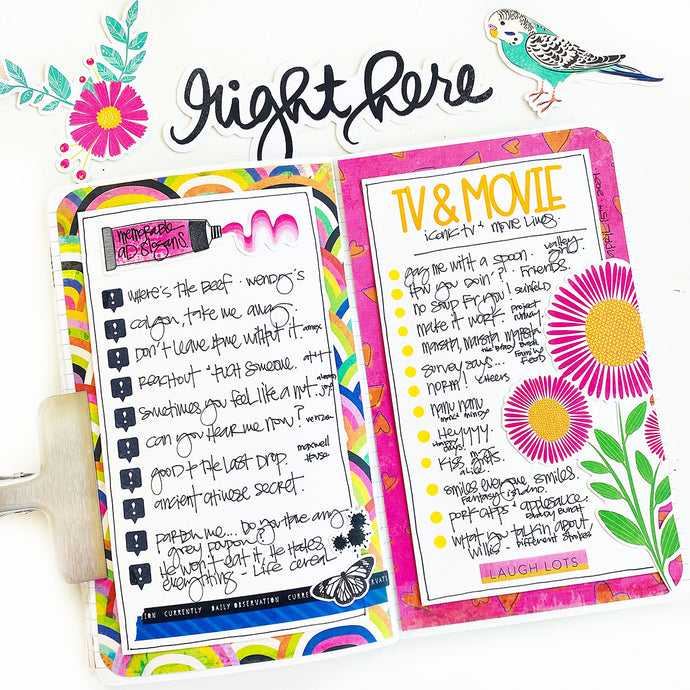 right here
memorable
ad slogans
WHERE'S THE BEEF. WENDY'S
calgon, take me away
DON'T LEAVE HOME WITHOUT IT. amex
REACHOUT + TOUCH SOMEONE. AT+T
sometimes you FEEL LIKE a NUT. almond joy
can you HEAR ME NOW? verizon
GOOD to the LAST DROP. maxwell
House
ancient chinese secret.
pardon me... Do you Have any
grey poupon?
He won't eat it. He Hates
everything - Life cereal
ION CURRENTLY DAILY OBSERVATION CURRE
RVATI
TV & MOVIE
iconic tv + movie lines
gag me with a spoon. valley
girl
How you Doin'? Friends.
no soup For you! seinfeld
make it work project
runway
marsha, marsha, marsha
the brady bunch
survey says... Family
Feud
NORM! cheers
nanu nanu
mork + mindy
Heyyyy.
Happy
days.
Kiss my grits
alice.
smiles everyone smiles.
Fantasy island.
pork chops + applesauce.
Bradey Bunch
what you talkin about
willis - Different strokes
LAUGH LOTS